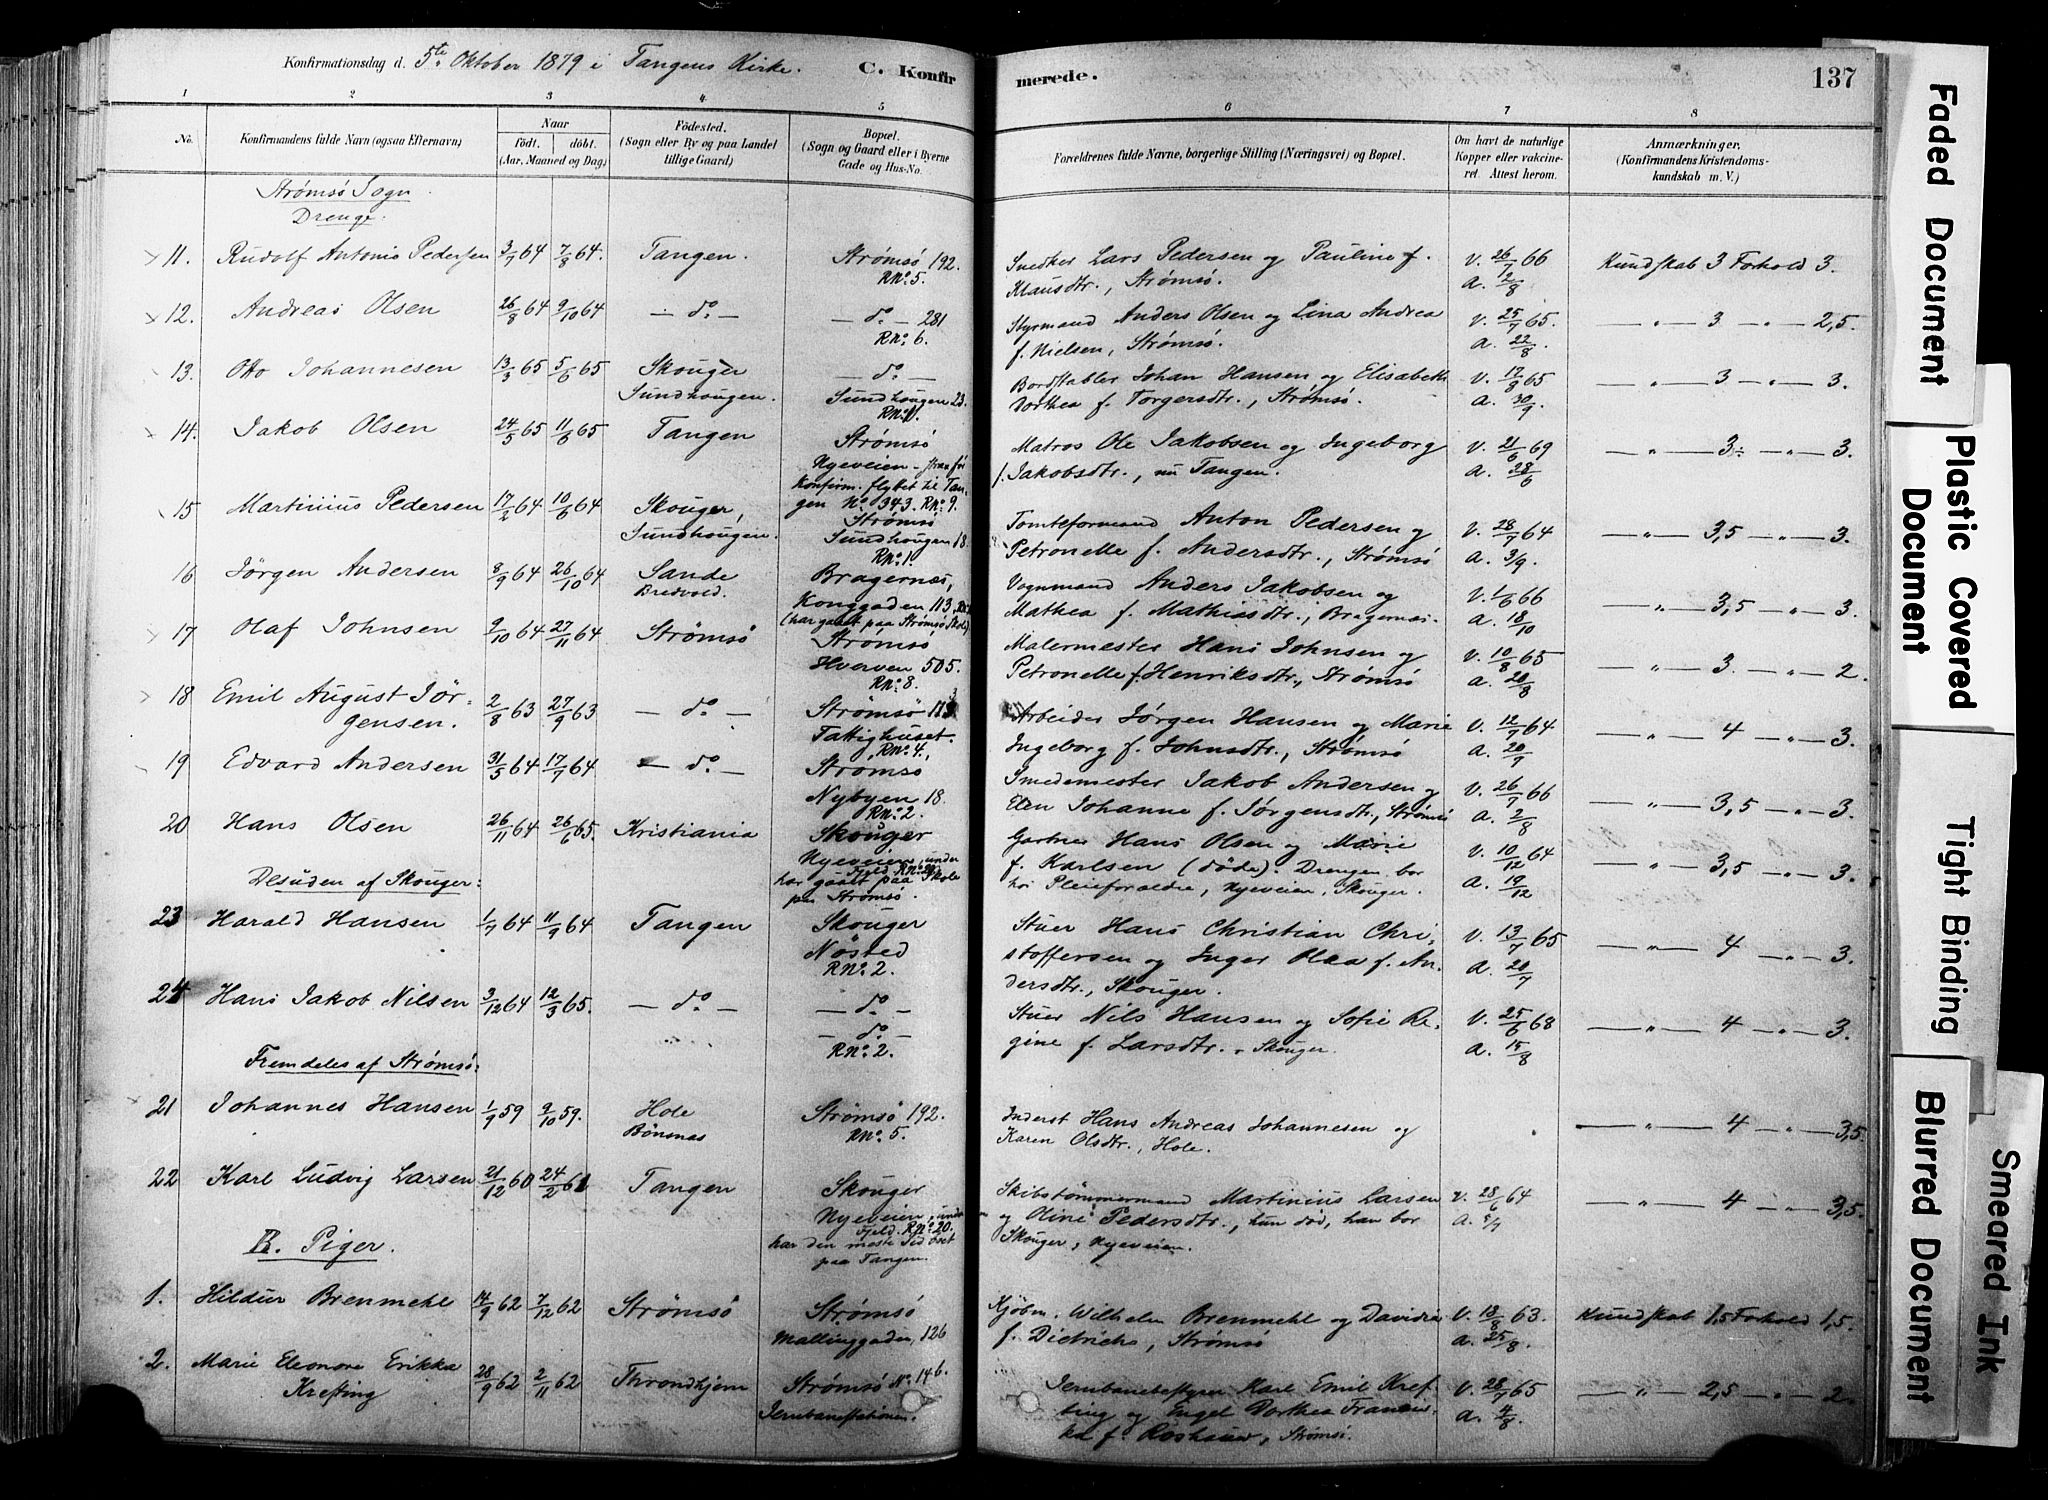 Konfirmationsdag d. 5te Oktober 1879 i Tangens Kirke. C. Konfirmerede. 137
1 2 3 4 5 6 7 8
No. Konfirmandens fulde Navn (ogsaa Efternavn) Naar födt. döbt. (Aar, Maaned og Dag) Födested. (Sogn eller By og paa Landet tillige Gaard) Bopæl. (Sogn og Gaard eller i Byerne Gade og Hus-No. Forældrenes fulde Navne, borgerlige Stilling (Næringsvei) og Bopæl. Om havt de naturlige Kopper eller vakcineret. Attest herom. Anmærkninger. (Konfirmandens Kristendomskundskab m. V.)
Strømsø Sogn
Drenge.
11. Rudolf Antonio Pedersen 3/7 64 7/8 64. Tangen. Strømsø 192. RNo. 5. Snedker Lars Pedersen og Pauline f. Klausdtr., Strømsø. V. 26/7 66 a. 2/8 Kundskab 3 Forhold 3.
12. Andreas Olsen 26/8 64 9/10 64 — do. — — do. — 281 RNo. 6. Styrmand Anders Olsen og Lina Andrea f. Nielsen, Strømsø. V. 25/7 65. a. 22/8 — " — 3 — " — 2,5.
13. Otto Johannesen 13/3 65 5/6 65 Skouger Sundhougen. — do. — Sundhougen 23. RNo. 1. Bordstabler Johan Hansen og Elisabeth Dorthea f. Torgersdtr., Strømsø. V. 12/8 65 a. 30/9. — " — 3 — " — 3.
14. Jakob Olsen 24/5 65 11/6 65 Tangen Strømsø Nyeveien - strax før Konfirm. flyttet til Tangen No. 343. RNo. 9. Matros Ole Jakobsen og Ingeborg f. Jakobsdtr., nu Tangen. V. 21/6 69 a. 28/6 — " — 3 — " — 3.
15 Martinius Pedersen 17/2 64 10/6 64 Skouger, Sundhougen. Strømsø Sundhougen 18. RNo. 1. Tomteformand Anton Pedersen og Petronelle f. Andersdtr., Strømsø V. 28/7 64 a. 3/9. — " — 3,5 — " — 3.
16 Jörgen Andersen 8/9 64 26/10 64 Sande Bredvold. Bragernæs, Konggaden 113, (har gaaet paa Strømsø Skole) Vognmand Anders Jakobsen og Mathea f. Mathiasdtr., Bragernæs. V. 1/6 66 a. 18/10 — " — 3,5 — " — 3.
17 Olaf Johnsen 9/10 64 27/11 64 Strömsö Strømsø Hverven 505. RNo. 8. Malermester Hans Johnsen og Petronelle f. Henriksdtr., Strømsø V. 10/8 65 a. 20/8 — " — 3. — " — 2.
18 Emil August Jörgensen. 2/8 63 27/9 63 — do. — Strømsø Fattighuset. RNo. 4. Arbeider Jørgen Hansen og Marie Ingeborg f. Johnsdtr., Strømsø V. 12/7 64 a. 20/7 — " — 4 — " — 3.
19 Edvard Andersen 31/5 64 17/7 64 — do. — Strømsø Nybyen 18. RNo. 2. Smedemester Jakob Andersen og Elen Johanne f. Jørgensdtr., Strømsø V. 26/7 66 a. 2/8 — " — 3,5 — " — 3.
20 Hans Olsen 26/11 64 26/6 65. Kristiania Skouger Nyeveien, under Fjeld. RNo. 20. har gaaet paa Skole paa Strømsø. Gartner Hans Olsen og Marie f. Karlsen (døde). Drengen bor hos Pleieforældre, Nyeveien, Skouger. V. 10/12 64 a. 19/12 — " — 3,5 — " — 3.
Desuden af Skouger:
23 Harald Hansen 1/7 64 11/9 64 Tangen Skouger Nösted RNo. 2. Stuer Hans Christian Christoffersen og Inger Olea f. Andersdtr., Skouger. V. 13/7 65 a. 20/7 — " — 4 — " — 3.
24 Hans Jakob Nilsen 3/12 64 12/3 65. — do. — — do. — — do. — RNo. 2. Stuer Nils Hansen og Sofie Regine f. Larsdtr., Skouger. V. 25/6 68 a. 15/8 — " — 4 — " — 3.
Fremdeles af Strømsø:
21 Johannes Hansen 1/9 59 9/10 59. Hole Bönsnæs Strømsø 192. RNo. 5. Inderst Hans Andreas Johannesen og Karen Olsdtr., Hole. — " — 4 — " — 3,5.
22 Karl Ludvig Larsen 21/12 60 24/2 61 Tangen Skouger Nyeveien, under Fjeld. RNo. 20. har den meste Tid boet paa Tangen. Skibstømmermand Martinius Larsen og Oline Pedersdtr., hun død, han bor Skouger, Nyeveien. V. 28/6 64 a. — " — 4 — " — 3,5.
B. Piger.
1. Hildur Brenmehl 14/9 62 7/12 62 Strömsö Strömsö Mallinggaden, 126 Kjøbm. Wilhelm Brenmehl og Davidia f. Dietrichs, Strømsø V. 18/8 63. a. 25/8. Kundskab 1,5 Forhold 1,5.
2. Marie Eleonore Erikka Krefting 28/9 62 2/11 62 Throndhjem Strømsø No. 146. Jernbanestationen. Jernbanebestyrer Karl Emil Krefting og Engel Dorthea Franciska f. Roshauw, Strømsø. V. 28/7 65 a. 4/8. — " — 2,5 — " — 2.
Faded Document
Plastic Covered Document
Tight Binding
Blurred Document
Smeared Ink